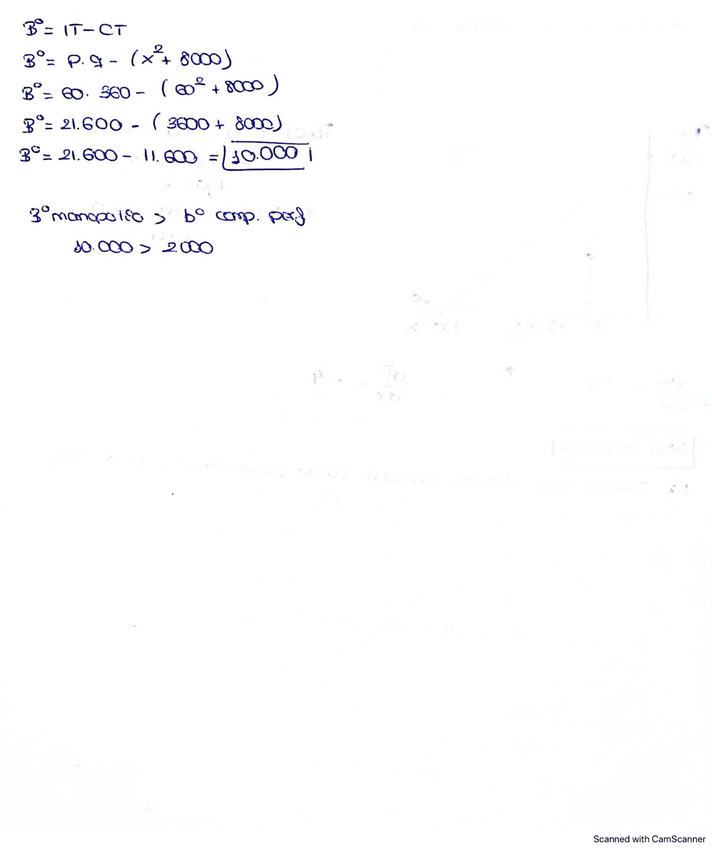 Bº = IT - CT
Bº = p.q - (x² + 8000)
Bº = 60. 360 - (60² + 8000)
Bº = 21.600 - (3600 + 8000)
Bº = 21.600 - 11.600 = 10.000
Bº monopolio > bº comp. perf
10.000 > 2000
Scanned with CamScanner